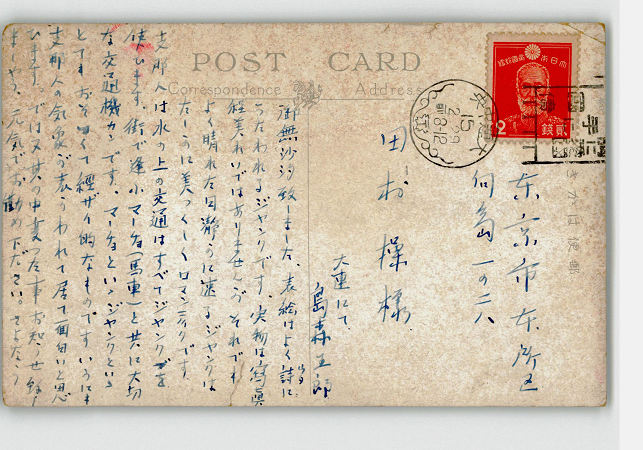 POST CARD
Correspondence
Address
大日本帝國郵便
2 錢 貳
15
2.29
前8-12
東京市本所区
向島一の二八
田村 操様
大連にて
島森五郎
御無沙汰致しました、表絵はよく詩に
うたわれるジャンクです、実物は寫眞
程美れいではありませんがそれでも
よく晴れた日 静かに走るジャンクは
たしかに美つくしくロマンテックです。
支那人は水の上の交通はすべてジャンクを
使ひます、街で逢ふマーチョ(馬車)と共に大切
な交通機カンです、マーチョといゝジャンクといゝ
とてもおそろしく経ザイ的なものです いかにも
支那人の気象が表らわれて居て面白いと思
ひます。では又其の中変った事お知らせ致し
ます、元気でお勤め下ださい。さよなら